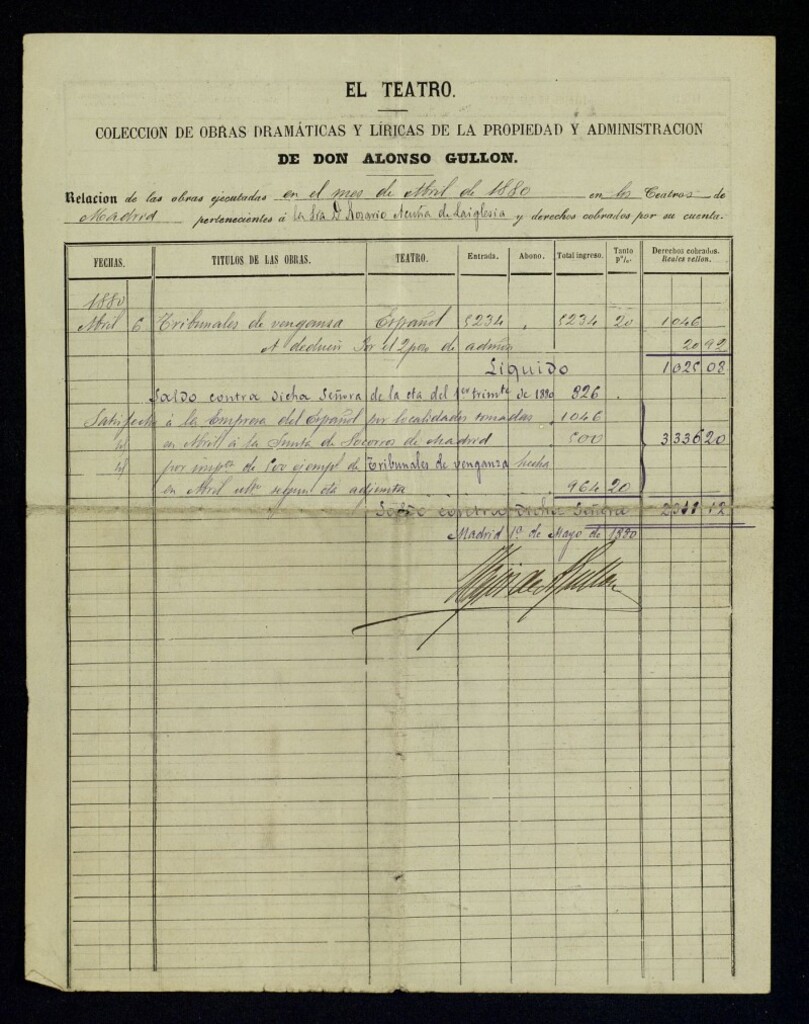 EL TEATRO.
COLECCION DE OBRAS DRAMÁTICAS Y LÍRICAS DE LA PROPIEDAD Y ADMINISTRACION
DE DON ALONSO GULLON.
Relacion de las obras ejecutadas en el mes de Abril de 1880 en los Teatros de
Madrid pertenecientes á la Sra Dª Rosario Acuña de Laiglesia y derechos cobrados por su cuenta.
FECHAS. TITULOS DE LAS OBRAS. TEATRO. Entrada. Abono. Total ingreso. Tanto p% Derechos cobrados. Reales vellon.
1880
Abril 6 Tribunales de venganza Español 5234 " 5234 20 1046
A deducir Por el 2 p% de admón 20 92
Liquido 1025 08
Saldo contra dicha Señora de la cta del 1er trimte de 1880 826 "
Satisfecho á la Empresa del Español por localidades tomadas 1046
id en Abril á la Junta de Socorros de Madrid 500 3336 20
id por impon de 500 ejempl de Tribunales de venganza hecha
en Abril ulto segun cta adjunta 964 20
Saldo contra dicha Señora 2311 12
Madrid 1º de Mayo de 1880
Hijos de A Gullon